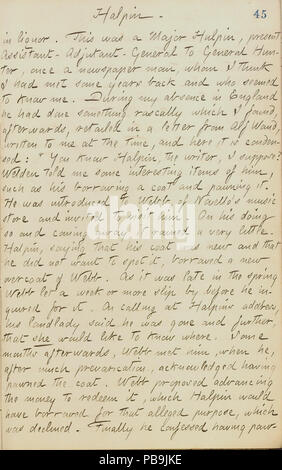 Halpin.
45
in liquor. This was a Major Halpin, present
Assistant-Adjutant-General to General Hun-
ter, once a newspaper man, whom I think
I had met some years back and who seemed
to know me. During my absence in England
he had done something rascally which I found,
afterwards, retailed in a letter from Alf Waud,
written to me at the time, and here it is conden-
sed: "You know Halpin, the writer, I suppose?
Welden told me some interesting items of him,
such as his borrowing a coat and pawning it.
He was introduced to Webb of Novello's music
store and invited to visit him. On his doing
so and coming away it rained a very little.
Halpin, saying that his coat was new and that
he did not want to spot it, borrowed a new
overcoat of Webb. As it was late in the spring
Webb let a week or more slip by before he in-
quired for it. On calling at Halpin's address,
his landlady said he was gone and further
that she would like to know where. Some
months afterwards, Webb met him, when he,
after much prevarication, acknowledged having
pawned the coat. Webb proposed advancing
the money to redeem it, which Halpin would
have borrowed for that alleged purpose, which
was declined. Finally he confessed having pawn-
alamy
alamy stock photo
PB9JKE